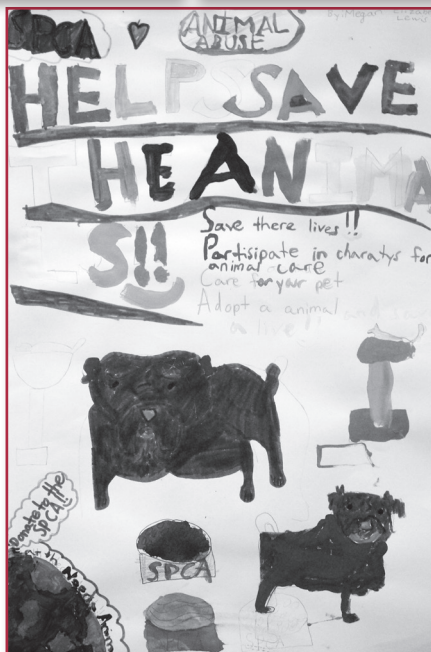 SPCA
ANIMAL
ABUSE
By: Megan
HELP SAVE
THE ANIMA
LS!!
Save there lives!!
Partisipate in charatys for
animal care
Care for your pet
Adopt a animal and save
a live!
Donate to the
SPCA!!
SPCA